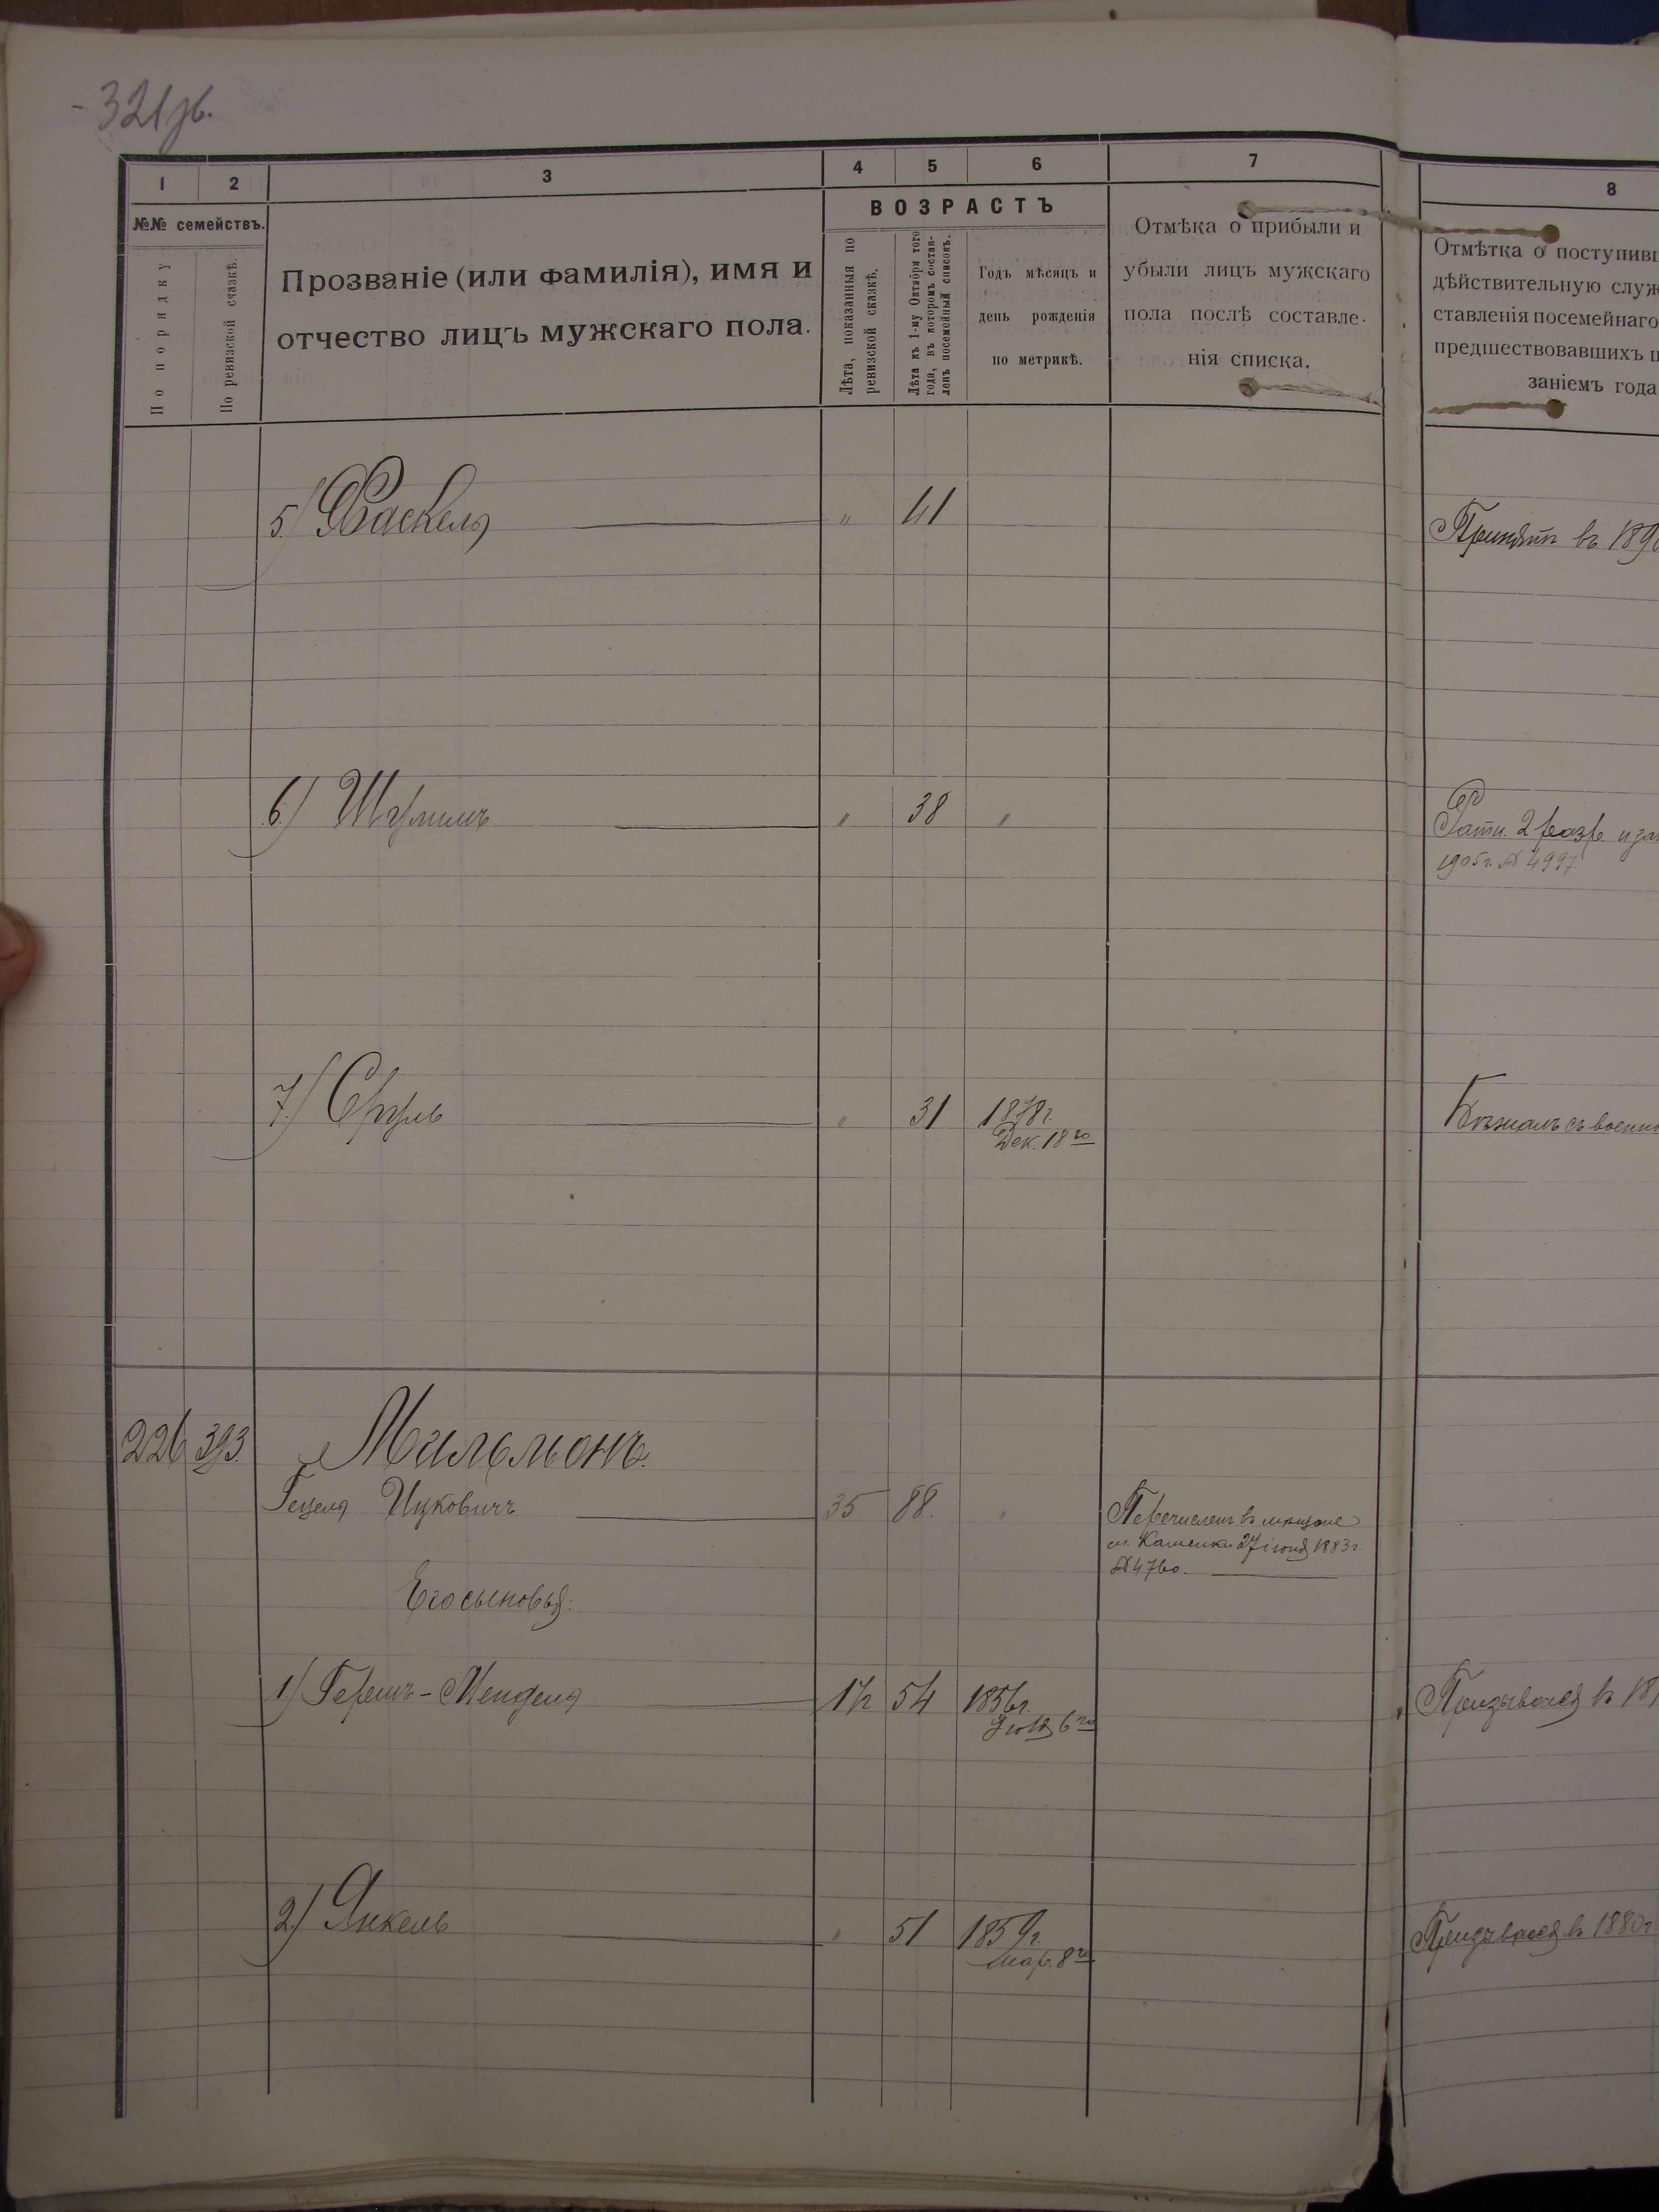 321 об.
1 2 3 4 5 6 7 8
№№ семействъ.
По порядку
По ревизской сказкѣ.
Прозваніе (или фамилія), имя и
отчество лицъ мужскаго пола.
ВОЗРАСТЪ
Лѣта, показанныя по
ревизской сказкѣ.
Лѣта къ 1-му Октября того
года, въ которомъ состав-
ленъ посемейный списокъ.
Годъ мѣсяцъ и
день рожденія
по метрикѣ.
Отмѣка о прибыли и
убыли лицъ мужскаго
пола послѣ составле-
нія списка.
Отмѣтка о поступивш
дѣйствительную служ
ставленія посемейнаго
предшествовавшихъ п
заніемъ года
5.) Хаскель " 41
Принятъ въ 189
6.) Шулимъ " 38 "
Ратн. 2 разр.
1905 г. № 4997.
7.) Сруль " 31 1878 г.
Дек. 18го
Бѣжалъ съ военн
226 393. Мильмонъ.
Гецель Ицковичъ 35 88. "
Перечисленъ въ мѣщане
м. Каменки 27 іюня 1883 г.
№ 4760.
Его сыновья:
1.) Гершъ-Мендель 1½ 54 1856 г.
Іюля 6го
Призывался въ 18
2.) Янкель " 51 1859 г.
Мар. 8го
Призывался въ 1880 г